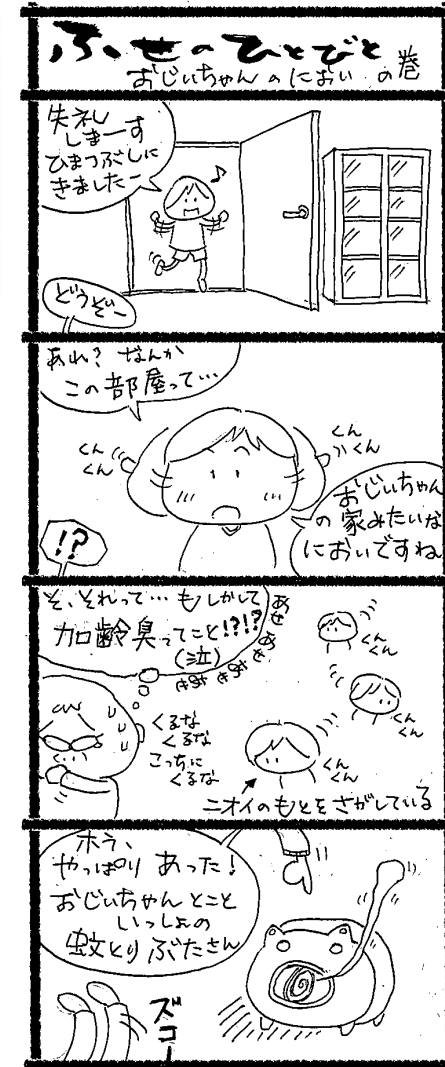 ふせのひとびと
おじいちゃんのにおいの巻
失礼
しまーす
ひまつぶしに
きましたー
♪
どうぞー
あれ？なんか
この部屋って…
くん
くん
くん
くん
おじいちゃん
の家みたいな
においですね
!?
そ、それって…もしかして
加齢臭ってこと!?!?
(泣)
あせ
あせ
くるな
くるな
こっちに
くるな
くん
くん
くん
くん
くん
くん
ニオイのもとをさがしている
ホラ、
やっぱりあった！
おじいちゃんとこと
いっしょの
蚊とりぶたさん
ズコー